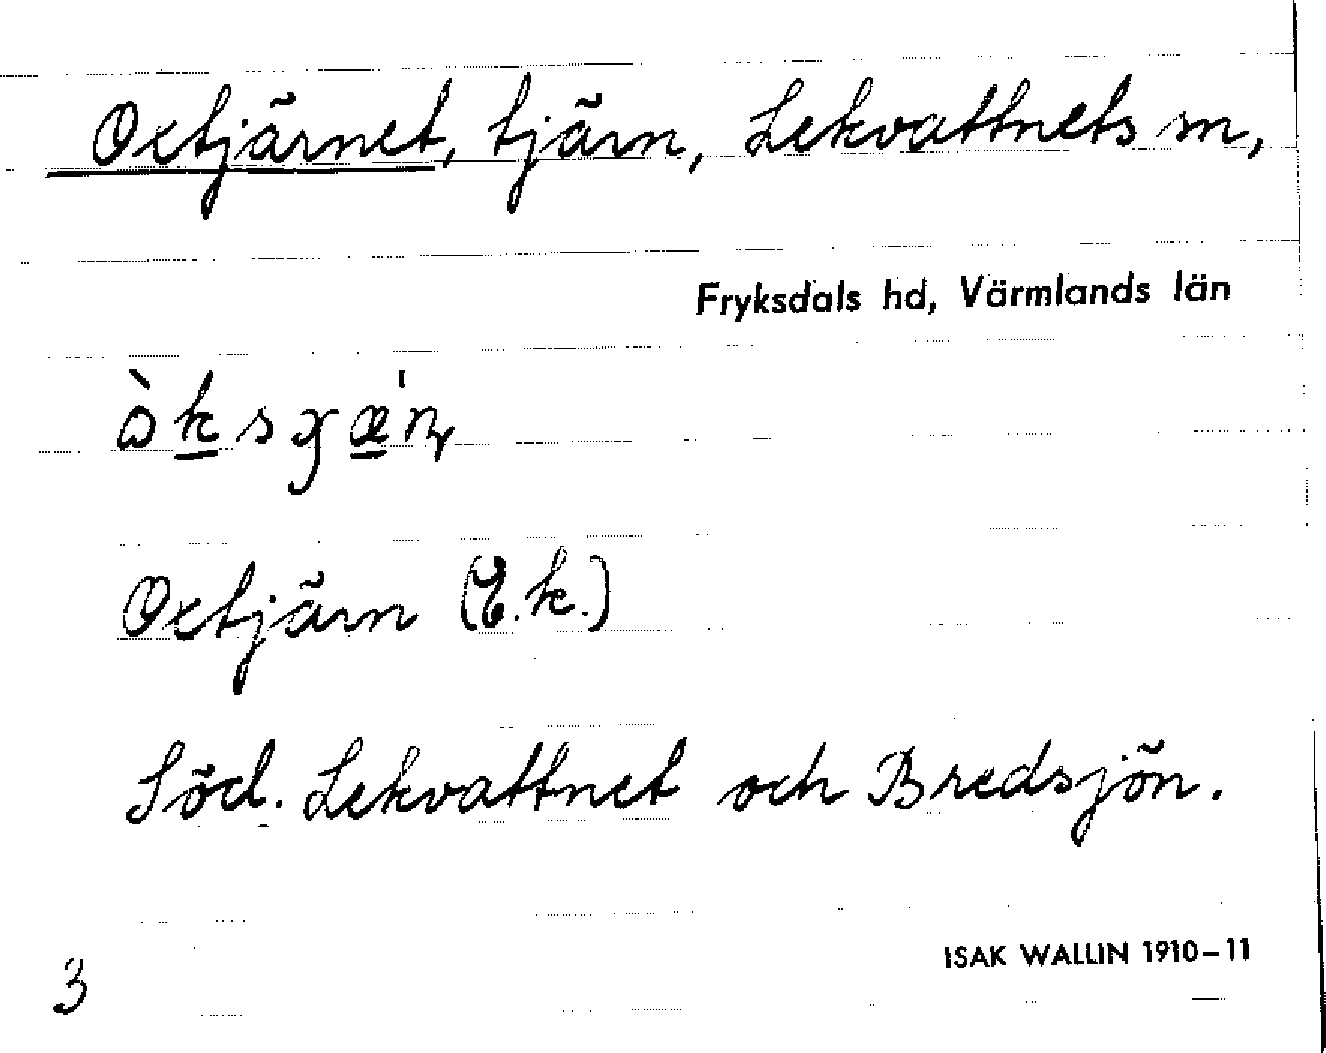 Oxtjärnet, tjärn, Lekvattnets sn,
Fryksdals hd, Värmlands län
Oxtjärn (E.k.)
Söd. Lekvattnet och Bredsjön.
3
ISAK WALLIN 1910–11